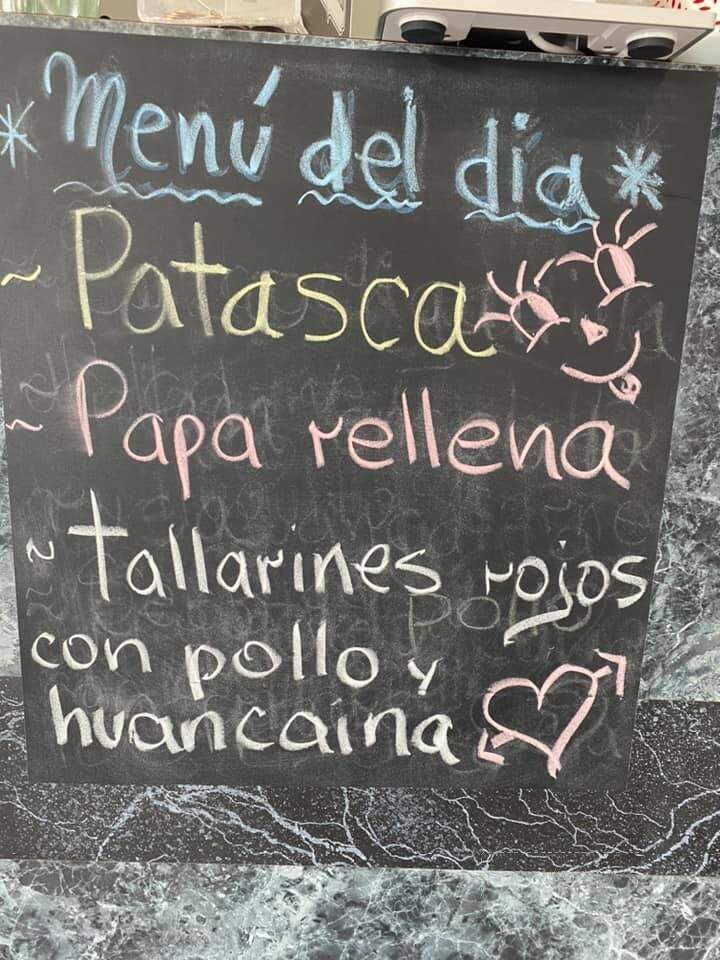 * Menú del día *
~ Patasca
~ Papa rellena
~ tallarines rojos
con pollo y
huancaína